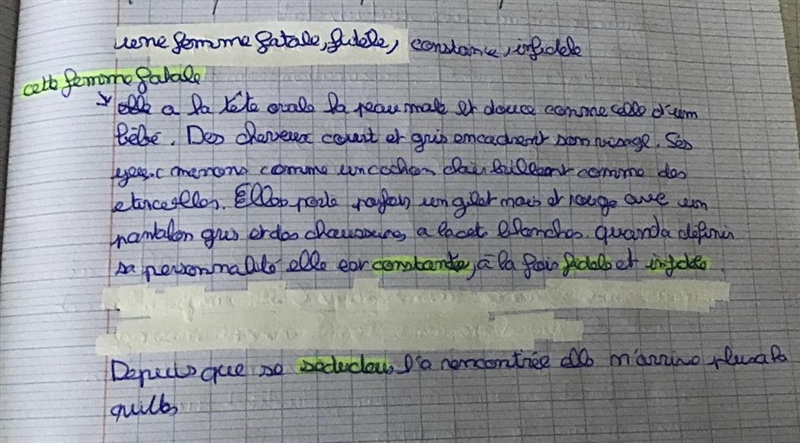 une femme fatale, fidèle, constance, infidele
cette femme fatale
elle a la tête orale la peau mate et douce comme celle d'um
bébé. Des cheveux court et gris encadrent son visage. Ses
yeux comme un cochon brillent comme des
etincelles. Elles porte parfois un gilet et rouge avec um
pantalon gris et des chaussures a lacet blanches. quand a definir
sa personnalité elle est constante, à la fois fidele et infidele.
Depuis que se seducteur l'a rencontrée elle n'arrive plus a la
quitter